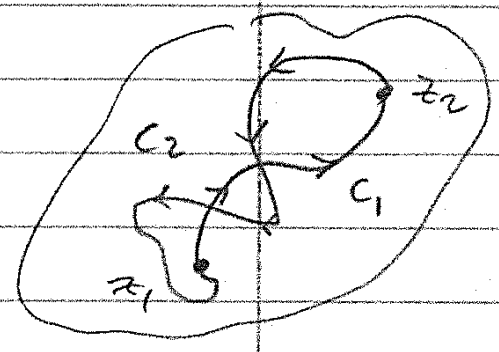 z₂
C₂
C₁
z₁